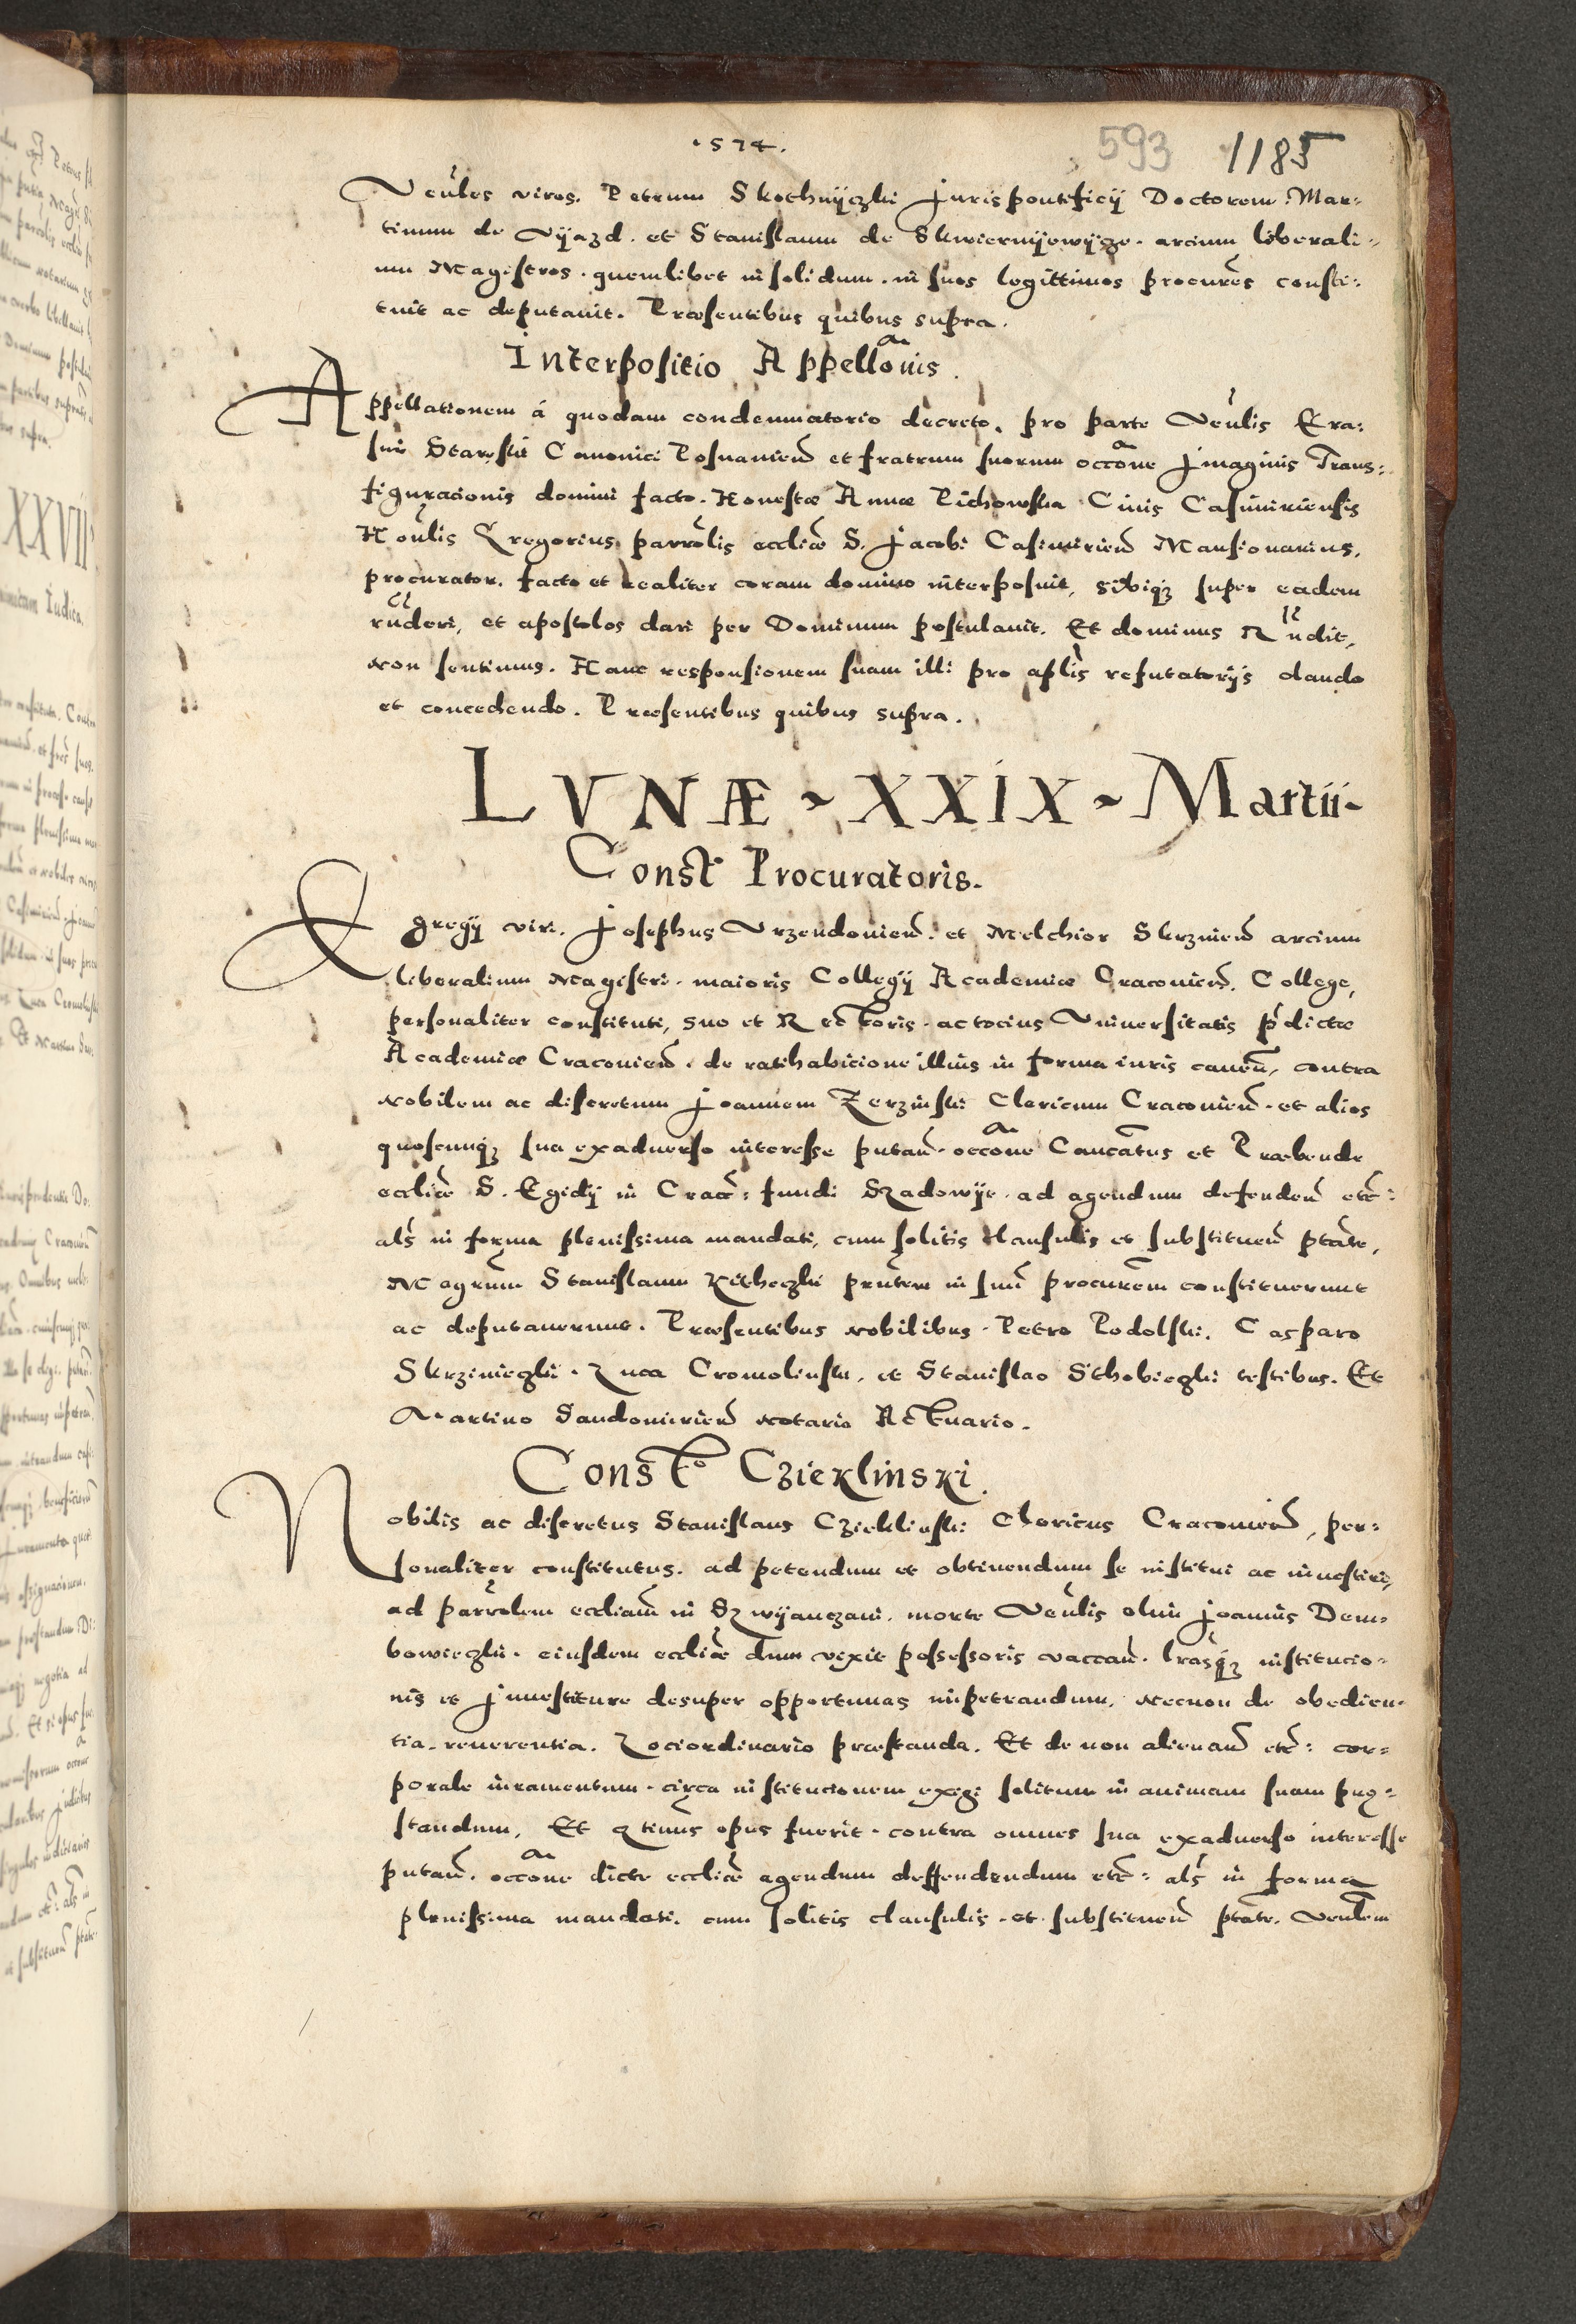 1574.
593 1185
Venles viros. Petrum Skothnyczki Juris pontificij Doctorem. Mar:
tinum de Vyazd. et Stanislaum de Skwiernyewycze. arcium liberali:
um Magistros. quemlibet insolidum. in suos legittimos procures consti:
tuit ac deputauit. Præsentibus quibus supra.
Interpositio Appellonis.
Appellationem á quodam condemnatorio decreto, pro parte Venlis Era:
smi Starski Canonici Posnanien et fratrum suorum occone Imaginis Trans:
figuracionis domini facto. Honestæ Annæ Pichowska Ciuis Casimiriensis
Honlis Gregorius parrolis eccliæ S. Jacobi Casimirien Mansionarius,
procurator. facto et realiter coram domino interposuit, sibiqz super eadem
rnderi, et apostolos dari per Dominum postulauit. Et dominus Rndit,
non sentimus. Hanc responsionem suam illi pro aplis refutatorijs dando
et concedendo. Præsentibus quibus supra.
LVNÆ ~ XXIX ~ Martii ~
Const° Procuratoris.
Egregij viri. Josephus Vrzendouien. et Melchior Skrzinien arcium
liberalium Magistri. maioris Collegij Academiæ Cracouien. Collegę,
personaliter constituti, suo et Rectoris. ac tocius Vniuersitatis pdictæ
Academiæ Cracouien. de ratihabicione illius in forma iuris cauen, contra
nobilem ac discretum Joannem Zerzinski Clericum Cracouien. et alios
quoscunqz sua exaduerso interesse putan. occone Cancatus et Præbende
eccliæ S. Egidij in Crac: fundi Dzadowye. ad agendum defenden etc:
als in forma plenissima mandati, cum solitis clausulis et substituen ptate,
Magrum Stanislaum Kitheczki pntem in suu procurem constituerunt
ac deputauerunt. Præsentibus nobilibus. Petro Podolski. Casparo
Skrziniegki. Luca Cromolinski, et Stanislao Sthobiegki testibus. Et
Martino Sandomirien notario Actuario.
Const° Czieklinski.
Nobilis ac discretus Stanislaus Czieklinski Clericus Cracouien, per:
sonaliter constitutus. ad petendum et obtinendum se institui ac inuestiri,
ad parrolem eccliam in Dzwyanczani. morte Venlis olim Joannis Dem:
bowieczki. eiusdem eccliæ dum vixit possessoris vaccan. lrasqz institucio:
nis et Inuestiture desuper opportunas impetrandum, necnon de obedien:
tia. reuerentia. Lociordinario præstanda. Et de non alienan etc: cor:
porale iuramentum. circa institucionem exigi solitum in animam suam pręs:
standum, Et qtinus opus fuerit. contra omnes sua exaduerso interesse
putan. occone dictę eccliæ agendum deffendendum etc: als in forma
plenissima mandati. cum solitis clausulis. et substituen ptate. Venlem